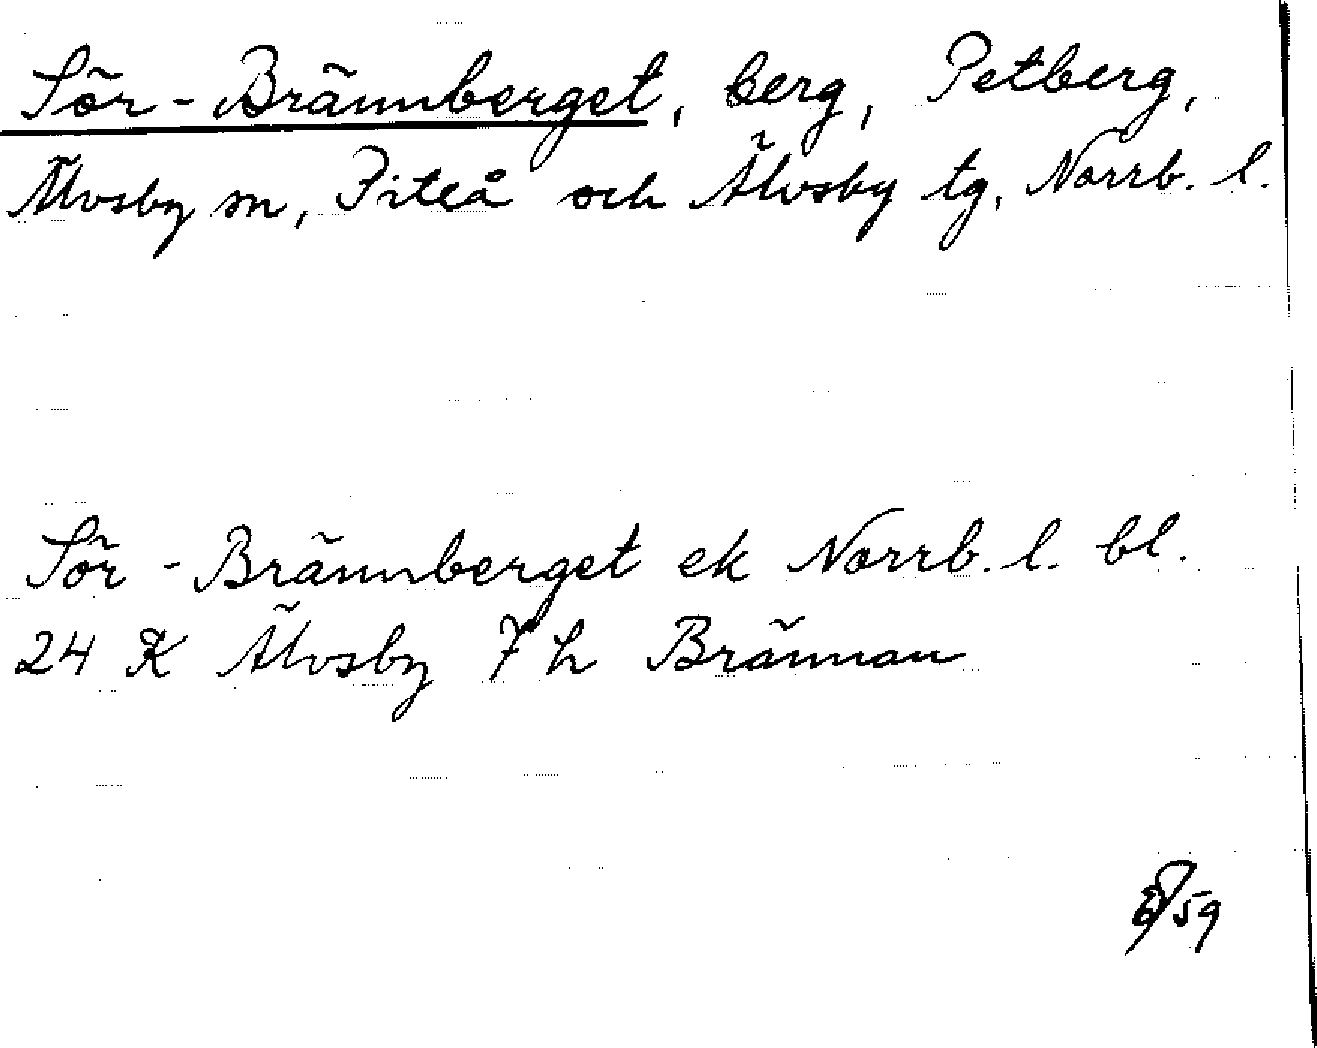 Sör-Brännberget, berg, Petberg,
Älvsby sn, Piteå och Älvsby tg, Norrb. l.
Sör-Brännberget ek Norrb. l. bl.
24 K Älvsby 7 h Brännan
59